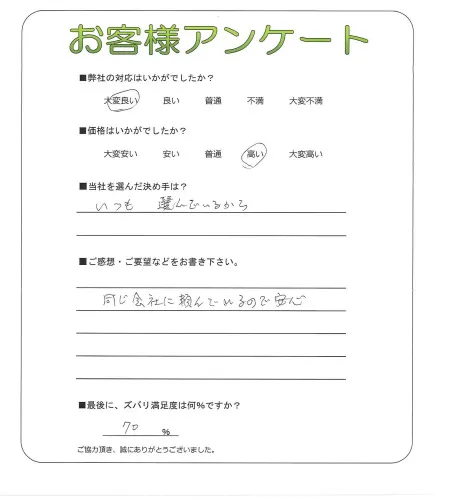 お客様アンケート
■弊社の対応はいかがでしたか？
大変良い 良い 普通 不満 大変不満
■価格はいかがでしたか？
大変安い 安い 普通 高い 大変高い
■当社を選んだ決め手は？
いつも 選んでいるから
■ご感想・ご要望などをお書き下さい。
同じ会社に頼んでいるので安心
■最後に、ズバリ満足度は何%ですか？
70 %
ご協力頂き、誠にありがとうございました。